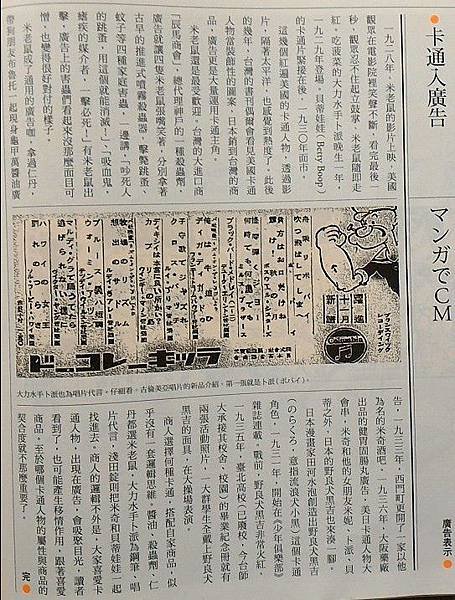 卡通入廣告
マンガでCM
一九二八年，米老鼠的影片上映，美國
觀眾在電影院裡笑聲不斷，看完最後一
秒，觀眾忍不住起立鼓掌，米老鼠隨即走
紅。吃菠菜的大力水手卜派晚生一年，
一九二九年登場，貝蒂娃娃（Betty Boop）
卡通片緊接在後，一九三○年面市。
這幾個紅遍美國的卡通人物，透過影
片，隔著太平洋，也感覺到熱度了。此後
的幾年，台灣的書刊偶爾會看見美國卡通
人物當裝飾性的圖案，日本銷到台灣的商
品，廣告更是大量運用卡通主角。
米老鼠還是最受歡迎。台灣的大進口商
「辰馬商會」總代理神戶的一種殺蟲劑，
廣告就讓四隻米老鼠張嘴笑著，分別拿著
古早的推進式噴霧殺蟲器，擊斃跳蚤、
蚊子等四種家庭害蟲，一邊講，「吵死人
的跳蚤，用這個就能消滅」、「吸血鬼，
瘧疾的媒介者，一擊必死」。有米老鼠出
擊，廣告上的害蟲們看起來沒那麼面目可
憎，也變得很好對付的樣子。
米老鼠成了通用的廣告咖，拿過仁丹，
帶狗朋友布魯托一起現身龜甲萬醬油廣
躍進
十一月
新譜
大力水手卜派也為唱片代言。仔細看，古倫美亞唱片的新品介紹，第一張就是卜派（ポパイ）。
廣告表示
告，一九三三年，西門町更開了一家以他
為名的米奇酒吧。一九三六年，大阪藥廠
出品的健胃固腸丸廣告，美日卡通人物大
會串，米奇和他的女朋友米妮、卜派、貝
蒂之外，日本的野良犬黑吉也來湊一腳。
日本漫畫家田河水泡創造出野良犬黑吉
（のらくろ，意指流浪犬小黑）這個卡通
角色，一九三一年，開始在《少年俱樂部》
雜誌連載，戰前，野良犬黑吉非常火紅。
一九三五年，臺北高校（已廢校，今台師
大承接其校舍、校園）的畢業紀念冊就有
兩張活動照片，一大群學生全戴上野良犬
黑吉的面具，在大操場表演。
商人選擇何種卡通，搭配自家商品，似
乎沒有一套邏輯思維，醬油、殺蟲劑、仁
丹都選米老鼠，大力水手卜派為鋼筆、唱
片代言，淺田錠則把米奇和貝蒂娃娃一起
找進去。商人的邏輯不外是，大家喜愛卡
通人物，出現在廣告，會吸聚目光，讀者
看到了，也可能產生移情作用，跟著喜愛
商品，至於哪個卡通人物的屬性與商品的
契合度就不那麼重要了。
完